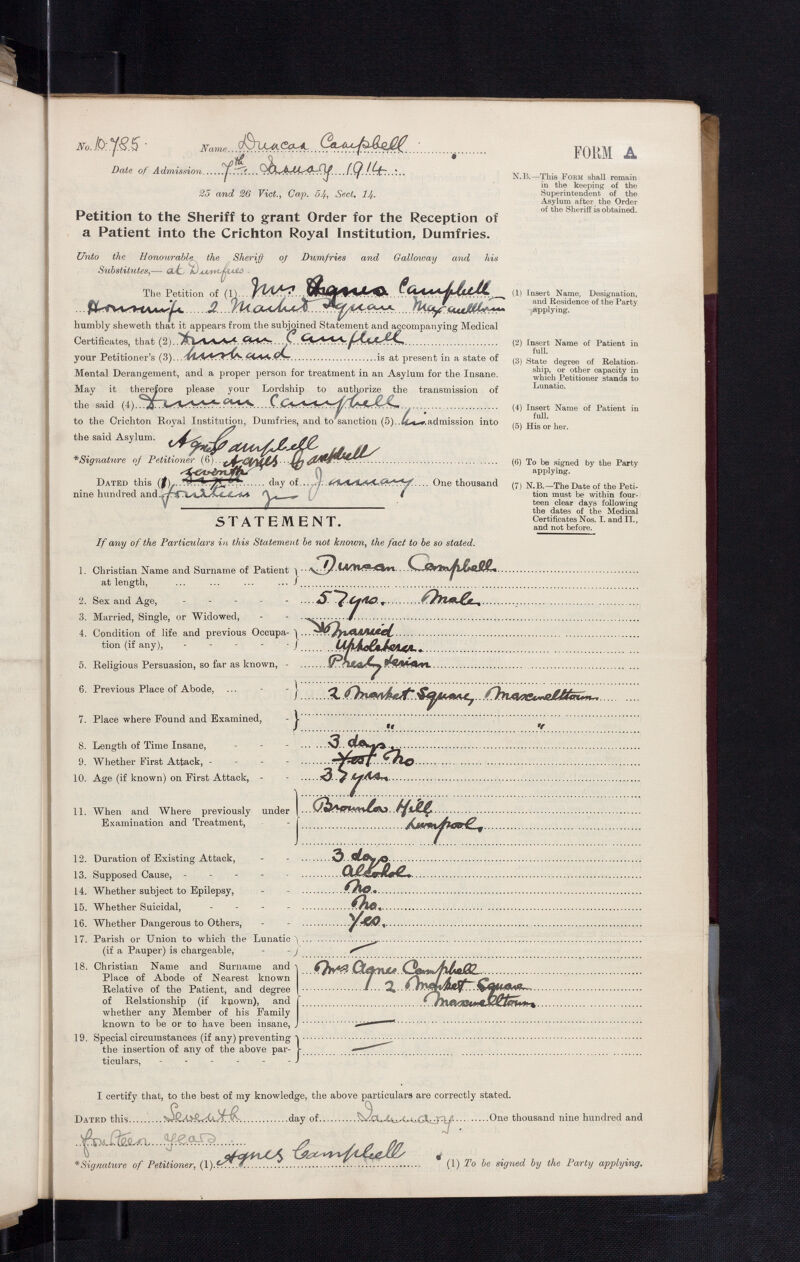 No. 10.785. Name Duncan Campbell
FORM A
Date of Admission 7th January 1914.
25 and 26 Vict., Cap. 54, Sect. 14.
N.B.—This FORM shall remain
in the keeping of the
Superintendent of the
Asylum after the Order
of the Sheriff is obtained.
Petition to the Sheriff to grant Order for the Reception of
a Patient into the Crichton Royal Institution, Dumfries.
Unto the Honourable the Sheriff of Dumfries and Galloway and his
Substitutes,— at Dumfries.
The Petition of (1) Mrs Agnes Campbell
Housewife 2 Market Square Maxwelltown
(1) Insert Name, Designation,
and Residence of the Party
applying.
humbly sheweth that it appears from the subjoined Statement and accompanying Medical
Certificates, that (2) Duncan Campbell
(2) Insert Name of Patient in
full.
your Petitioner's (3) husband is at present in a state of
Mental Derangement, and a proper person for treatment in an Asylum for the Insane.
(3) State degree of Relation-
ship, or other capacity in
which Petitioner stands to
Lunatic.
May it therefore please your Lordship to authorize the transmission of
the said (4) Duncan Campbell,
(4) Insert Name of Patient in
full.
to the Crichton Royal Institution, Dumfries, and to sanction (5) his admission into
(5) His or her.
the said Asylum.
Agnes Campbell
*Signature of Petitioner (6) Agnes Campbell
(6) To be signed by the Party
applying.
seventh
DATED this (7) day of January One thousand
nine hundred and fourteen
(7) N.B.—The Date of the Peti-
tion must be within four-
teen clear days following
the dates of the Medical
Certificates Nos. I. and II.,
and not before.
STATEMENT.
If any of the Particulars in this Statement be not known, the fact to be so stated.
1. Christian Name and Surname of Patient at length, ... Duncan Campbell
2. Sex and Age, - 57 yrs. Male
3. Married, Single, or Widowed, -
4. Condition of life and previous Occupa- Married
tion (if any), - Upholsterer.
5. Religious Persuasion, so far as known, - Presbyterian
6. Previous Place of Abode, ... - 2 Market Square, Maxwelltown
7. Place where Found and Examined, - " "
8. Length of Time Insane, - 3 days.
9. Whether First Attack, - Yes No
10. Age (if known) on First Attack, - 37 yrs
11. When and Where previously under Brownlow Hill
Examination and Treatment, - Liverpool.
12. Duration of Existing Attack, - 3 days
13. Supposed Cause, - Alcohol
14. Whether subject to Epilepsy, - No.
15. Whether Suicidal, - No.
16. Whether Dangerous to Others, - Yes.
17. Parish or Union to which the Lunatic
(if a Pauper) is chargeable, - —
18. Christian Name and Surname and Mrs Agnes Campbell
Place of Abode of Nearest known 2 Market Square
Relative of the Patient, and degree Maxwelltown
of Relationship (if known), and
whether any Member of his Family
known to be or to have been insane, —
19. Special circumstances (if any) preventing
the insertion of any of the above par- —
ticulars, -
I certify that, to the best of my knowledge, the above particulars are correctly stated.
DATED this Seventh day of January One thousand nine hundred and
fourteen years
*Signature of Petitioner, (1) Agnes Campbell
(1) To be signed by the Party applying.